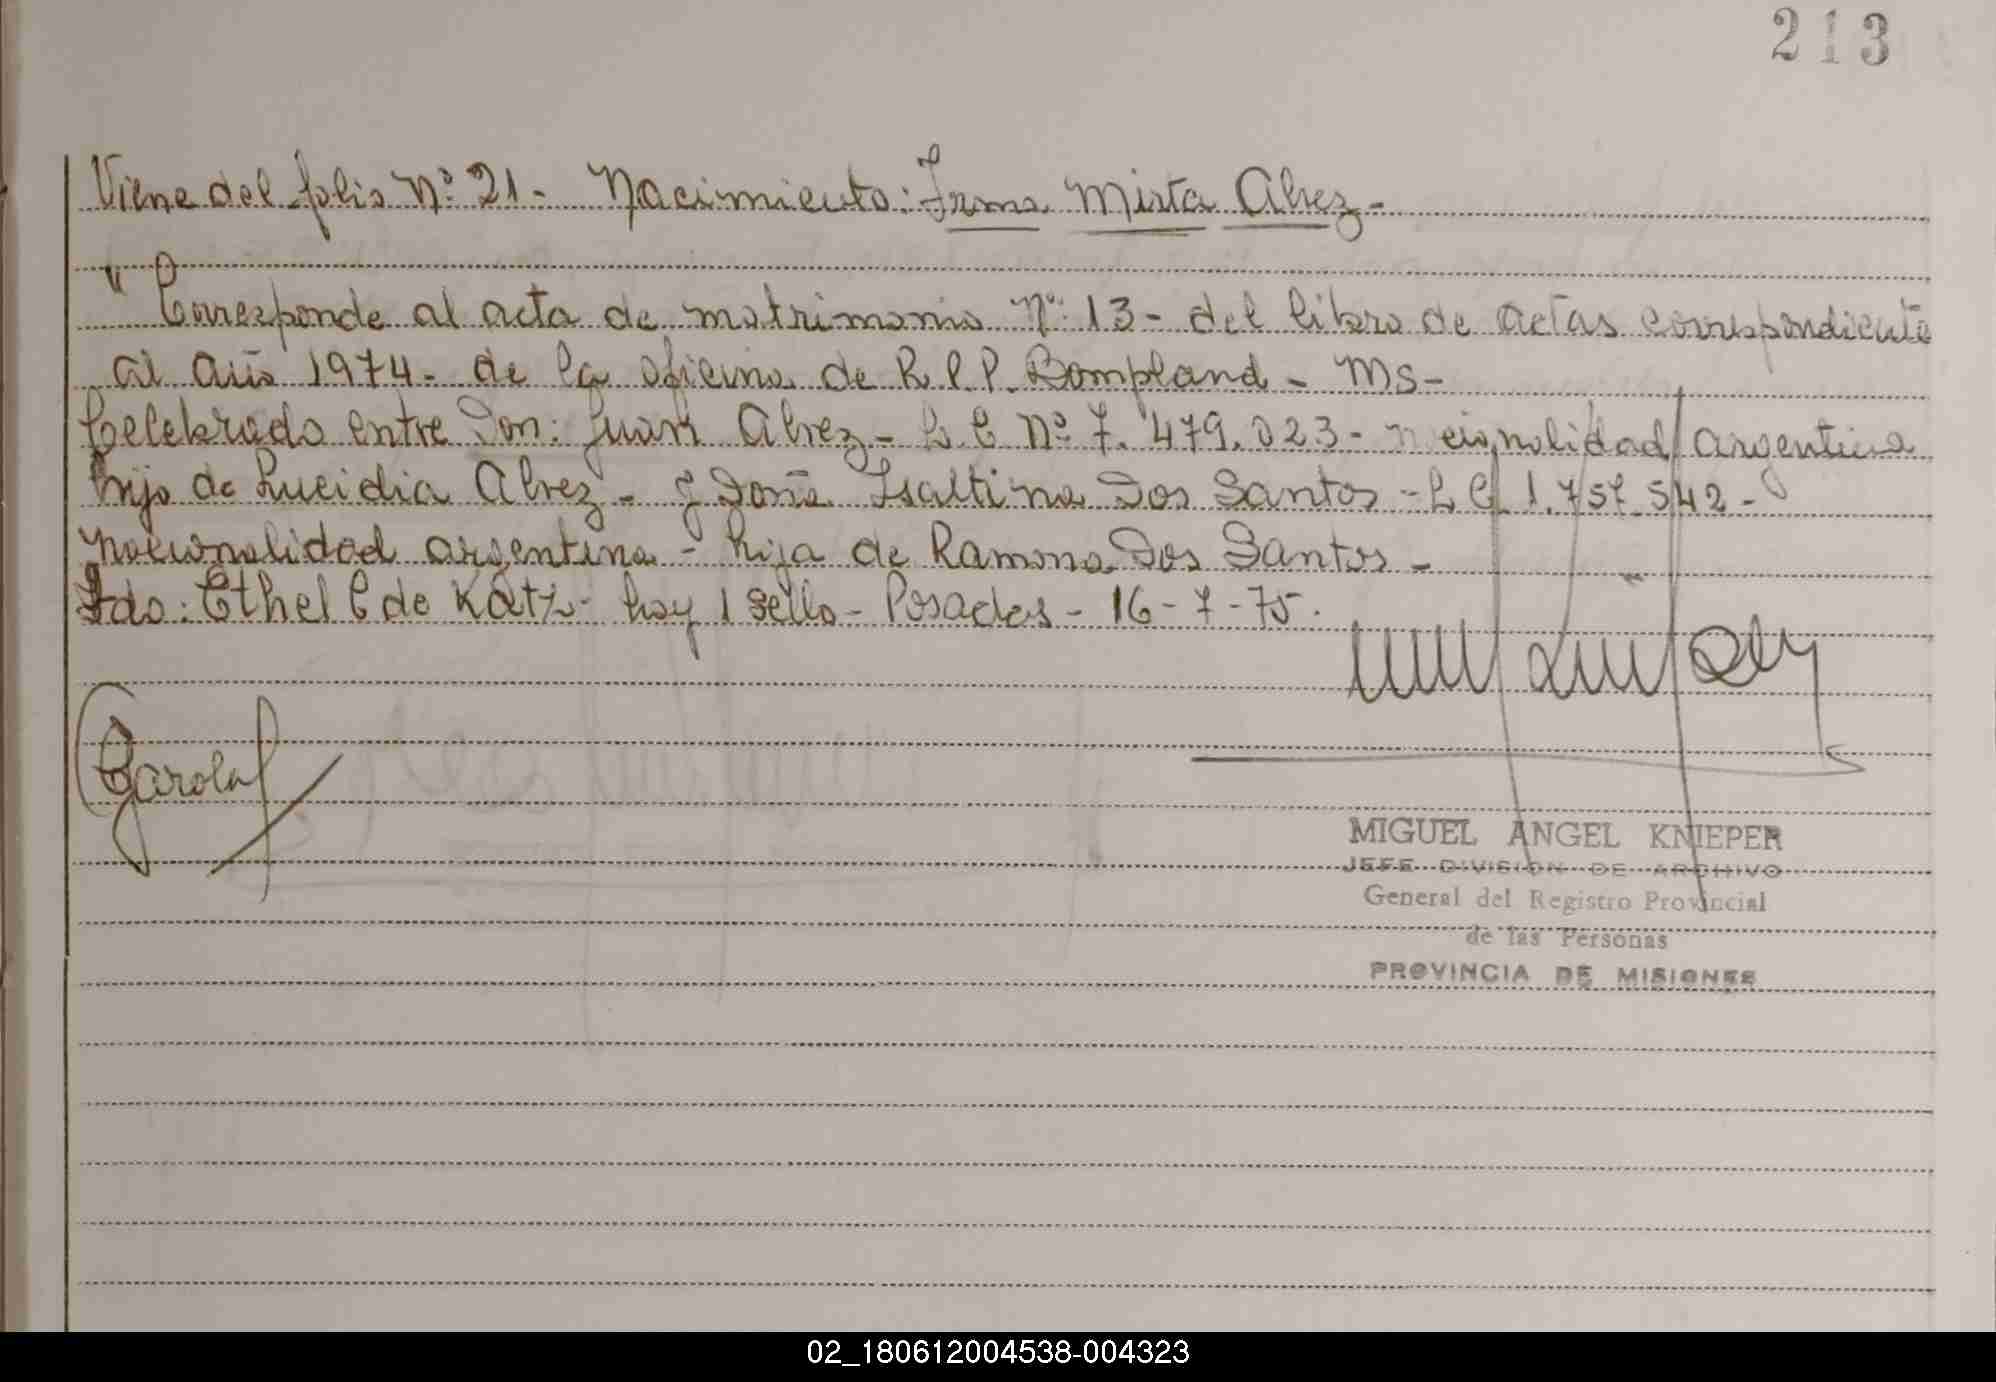 213
Viene del folio Nº 21 - Nacimiento: Irma Mirta Alvez -
" Corresponde al acta de matrimonio Nº 13 - del libro de actas correspondiente
al año 1974 - de la oficina de R.P.P. Bompland - Ms -
Celebrado entre Don: Juan Alvez - L C Nº 7.479.023 - nacionalidad argentina
hijo de Lucidia Alvez - y Doña Isaltina Dos Santos - L C 1.757.542 -
nacionalidad argentina - hija de Ramona Dos Santos -
Fdo: Ethel C de Katz - hay 1 sello - Posadas - 16 - 7 - 75.
Garola
MIGUEL ANGEL KNIEPER
JEFE DIVISION DE ARCHIVO
General del Registro Provincial
de las Personas
PROVINCIA DE MISIONES
02_180612004538-004323